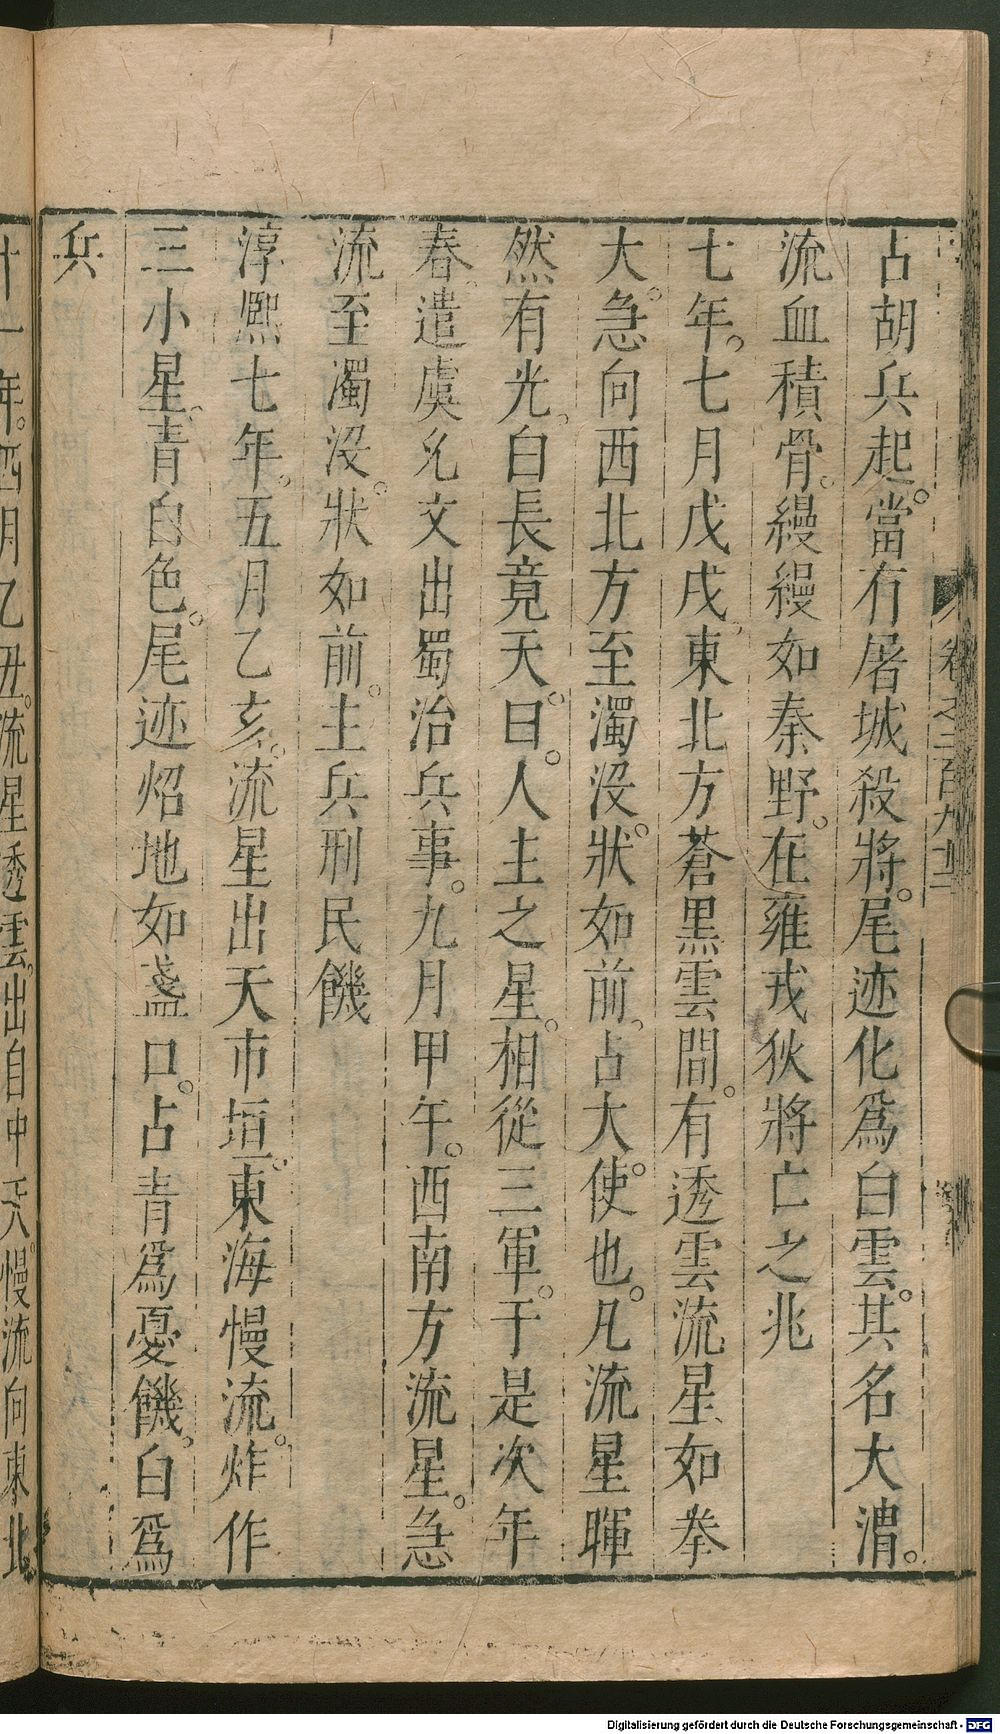 占胡兵起。當有屠城殺將。尾迹化爲白雲。其名大濆。
流血積骨。縵縵如秦野。在雍戎狄將亡之兆
七年。七月戊戌。東北方蒼黑雲間。有透雲流星如拳
大。急向西北方至濁沒。狀如前。占大使也。凡流星暉
然有光。白長竟天。曰。人主之星。相從三軍。于是次年
春。遣虞允文出蜀治兵事。九月甲午。西南方流星。急
流至濁沒。狀如前。主兵刑民饑
淳熙七年。五月乙亥。流星出天市垣。東海慢流。炸作
三小星。青白色。尾迹炤地如盞口。占青爲憂饑。白爲
兵
十一年。四月乙丑。流星透雲。出自中天。慢流向東北
卷之二百九十
Digitalisierung gefördert durch die Deutsche Forschungsgemeinschaft - DFG